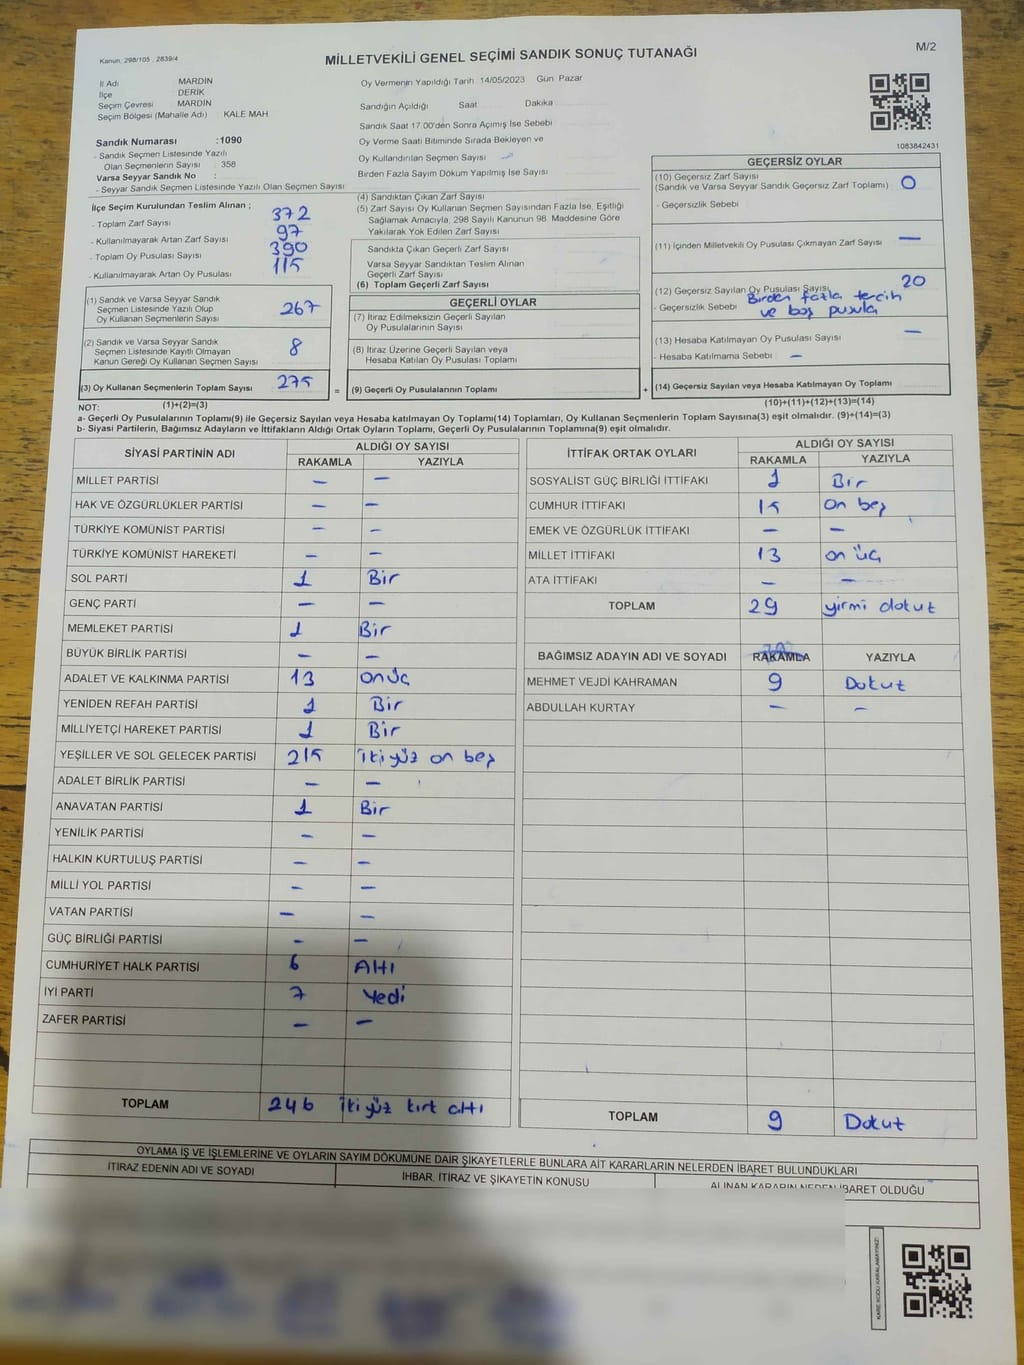 Kanun, 298/105 , 2839/4
MİLLETVEKİLİ GENEL SEÇİMİ SANDIK SONUÇ TUTANAĞI
M/2
İl Adı MARDİN
İlçe DERİK
Seçim Çevresi MARDİN
Seçim Bölgesi (Mahalle Adı) KALE MAH
Sandık Numarası :1090
- Sandık Seçmen Listesinde Yazılı
Olan Seçmenlerin Sayısı : 358
Varsa Seyyar Sandık No :
- Seyyar Sandık Seçmen Listesinde Yazılı Olan Seçmen Sayısı
Oy Vermenin Yapıldığı Tarih 14/05/2023 Gün Pazar
Sandığın Açıldığı Saat Dakika
Sandık Saat 17.00'den Sonra Açımış İse Sebebi
Oy Verme Saati Bitiminde Sırada Bekleyen ve
Oy Kullandırılan Seçmen Sayısı –
Birden Fazla Sayım Döküm Yapılmış İse Sayısı
1083842431
İlçe Seçim Kurulundan Teslim Alınan ;
- Toplam Zarf Sayısı 372
- Kullanılmayarak Artan Zarf Sayısı 97
- Toplam Oy Pusulası Sayısı 390
- Kullanılmayarak Artan Oy Pusulası 115
(1) Sandık ve Varsa Seyyar Sandık
Seçmen Listesinde Yazılı Olup
Oy Kullanan Seçmenlerin Sayısı 267
(2) Sandık ve Varsa Seyyar Sandık
Seçmen Listesinde Kayıtlı Olmayan
Kanun Gereği Oy Kullanan Seçmen Sayısı 8
(3) Oy Kullanan Seçmenlerin Toplam Sayısı 275 =
(1)+(2)=(3)
(4) Sandıktan Çıkan Zarf Sayısı
(5) Zarf Sayısı Oy Kullanan Seçmen Sayısından Fazla İse, Eşitliği
Sağlamak Amacıyla, 298 Sayılı Kanunun 98. Maddesine Göre
Yakılarak Yok Edilen Zarf Sayısı
Sandıkta Çıkan Geçerli Zarf Sayısı
Varsa Seyyar Sandıktan Teslim Alınan
Geçerli Zarf Sayısı
(6) Toplam Geçerli Zarf Sayısı
GEÇERLİ OYLAR
(7) İtiraz Edilmeksizin Geçerli Sayılan
Oy Pusulalarının Sayısı
(8) İtiraz Üzerine Geçerli Sayılan veya
Hesaba Katılan Oy Pusulası Toplamı
(9) Geçerli Oy Pusulalarının Toplamı +
GEÇERSİZ OYLAR
(10) Geçersiz Zarf Sayısı
(Sandık ve Varsa Seyyar Sandık Geçersiz Zarf Toplamı) 0
- Geçersizlik Sebebi
(11) İçinden Milletvekili Oy Pusulası Çıkmayan Zarf Sayısı –
(12) Geçersiz Sayılan Oy Pusulası Sayısı 20
- Geçersizlik Sebebi Birden fazla tercih
ve boş pusula
(13) Hesaba Katılmayan Oy Pusulası Sayısı –
- Hesaba Katılmama Sebebi –
(14) Geçersiz Sayılan veya Hesaba Katılmayan Oy Toplamı
(10)+(11)+(12)+(13)=(14)
NOT:
a- Geçerli Oy Pusulalarının Toplamı(9) ile Geçersiz Sayılan veya Hesaba katılmayan Oy Toplamı(14) Toplamları, Oy Kullanan Seçmenlerin Toplam Sayısına(3) eşit olmalıdır. (9)+(14)=(3)
b- Siyasi Partilerin, Bağımsız Adayların ve İttifakların Aldığı Ortak Oyların Toplamı, Geçerli Oy Pusulalarının Toplamına(9) eşit olmalıdır.
SİYASİ PARTİNİN ADI ALDIĞI OY SAYISI
RAKAMLA YAZIYLA
MİLLET PARTİSİ – –
HAK VE ÖZGÜRLÜKLER PARTİSİ – –
TÜRKİYE KOMÜNİST PARTİSİ – –
TÜRKİYE KOMÜNİST HAREKETİ – –
SOL PARTİ 1 Bir
GENÇ PARTİ – –
MEMLEKET PARTİSİ 1 Bir
BÜYÜK BİRLİK PARTİSİ – –
ADALET VE KALKINMA PARTİSİ 13 onüç
YENİDEN REFAH PARTİSİ 1 Bir
MİLLİYETÇİ HAREKET PARTİSİ 1 Bir
YEŞİLLER VE SOL GELECEK PARTİSİ 215 iki yüz on beş
ADALET BİRLİK PARTİSİ – –
ANAVATAN PARTİSİ 1 Bir
YENİLİK PARTİSİ – –
HALKIN KURTULUŞ PARTİSİ – –
MİLLİ YOL PARTİSİ – –
VATAN PARTİSİ – –
GÜÇ BİRLİĞİ PARTİSİ – –
CUMHURİYET HALK PARTİSİ 6 Altı
İYİ PARTİ 7 Yedi
ZAFER PARTİSİ – –
TOPLAM 246 iki yüz kırk altı
İTTİFAK ORTAK OYLARI ALDIĞI OY SAYISI
RAKAMLA YAZIYLA
SOSYALİST GÜÇ BİRLİĞİ İTTİFAKI 1 Bir
CUMHUR İTTİFAKI 15 on beş
EMEK VE ÖZGÜRLÜK İTTİFAKI – –
MİLLET İTTİFAKI 13 on üç
ATA İTTİFAKI – –
TOPLAM 29 yirmi dokuz
BAĞIMSIZ ADAYIN ADI VE SOYADI RAKAMLA YAZIYLA
MEHMET VEJDİ KAHRAMAN 9 Dokuz
ABDULLAH KURTAY – –
TOPLAM 9 Dokuz
OYLAMA İŞ VE İŞLEMLERİNE VE OYLARIN SAYIM DÖKÜMÜNE DAİR ŞİKAYETLERLE BUNLARA AİT KARARLARIN NELERDEN İBARET BULUNDUKLARI
İTİRAZ EDENİN ADI VE SOYADI İHBAR, İTİRAZ VE ŞİKAYETİN KONUSU ALINAN KARARIN NEDEN İBARET OLDUĞU
KARE KODU KARALAMAYINIZ!